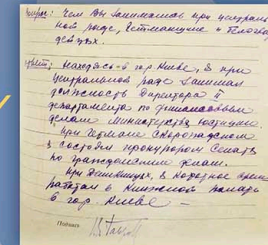 Вопрос: Чем Вы занимались при централь
ной раде, Гетманщине и
Ответ: Находясь в гор Киеве, я при
Центральной раде занимал
должность Директора II
департамента по финансовым
делам Министерства Юстиции
При Гетмане Скоропадском
я состоял прокурором Сената
по гражданским делам.
При Деникинцах, в короткое время
работал в Киевской
в гор. Киеве –
Подпись